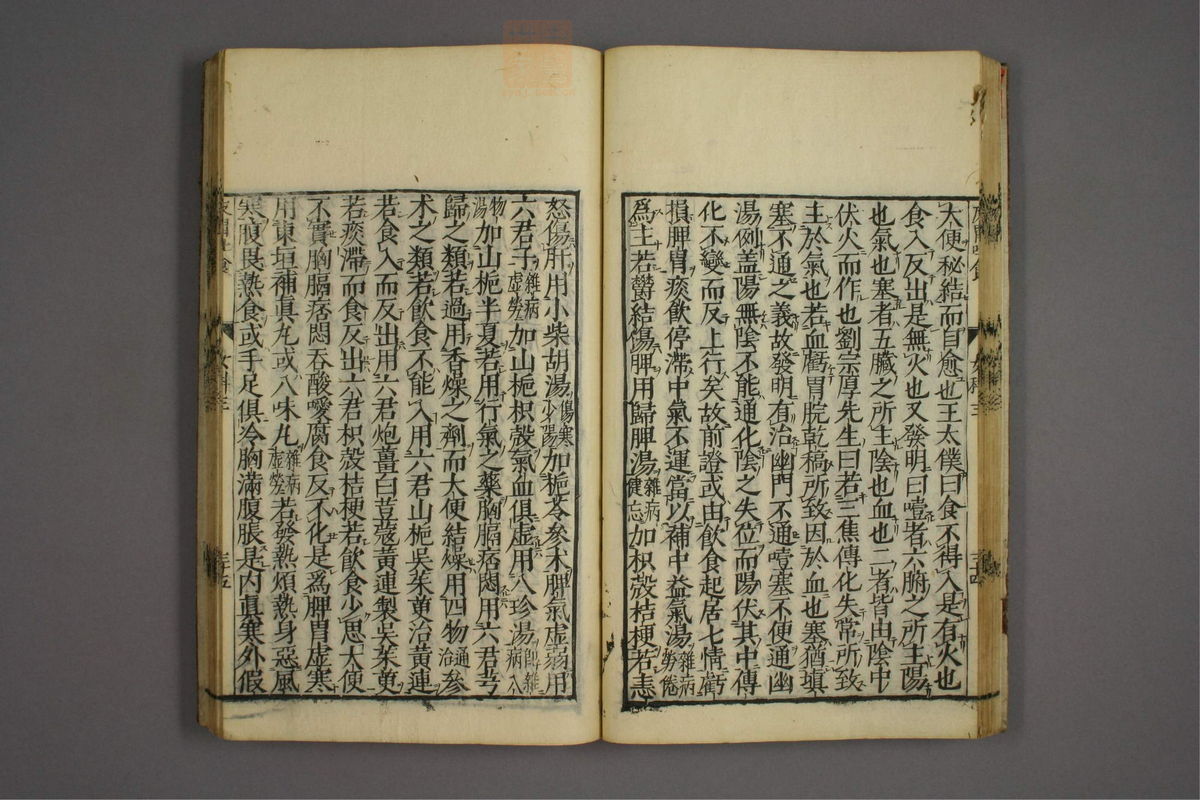 大便秘結而自愈也王太僕曰食不得入是有火也
食入反出是無火也又發明曰噎者六腑之所主陽
也氣也塞者五臟之所主陰也血也二者皆由陰中
伏火而作也劉宗厚先生曰若三焦傳化失常所致
主於氣也若血虧胃脘乾稿所致因於血也塞猶塡
塞不通之義故發明有治幽門不通噎塞不便通幽
湯例盖陽無陰不能通化陰之失位而陽伏其中傳
化不變而反上行矣故前證或由飲食起居七情虧
損脾胃痰飲停滯中氣不運當以補中益氣湯雜病勞倦
爲主若欝結傷脾用歸脾湯雜病健忘加枳殼桔梗若恚
怒傷肝用小柴胡湯傷寒少陽加梔苓參朮脾氣虛弱用
六君子雜病虛勞加山梔枳殼氣血俱虛用八珍湯即雜病入
物湯加山梔半夏若用行氣之藥胸膈痞悶用六君芎
歸之類若過用香燥之劑而大便結燥用四物通治參
朮之類若飲食不能入用六君山梔吳茱萸治黃連
若食入而反出用六君炮薑白荳蔻黃連製吳茱萸
若痰滯而食反出六君枳殼桔梗若飲食少思大便
不實胸膈痞悶吞酸噯腐食反不化是爲脾胃虛寒
用東垣補眞丸或八味丸雜病虛勞若發熱煩熱身惡風
寒腹畏熱食或手足俱冷胸滿腹脹是内眞寒外假
女科三
三十五